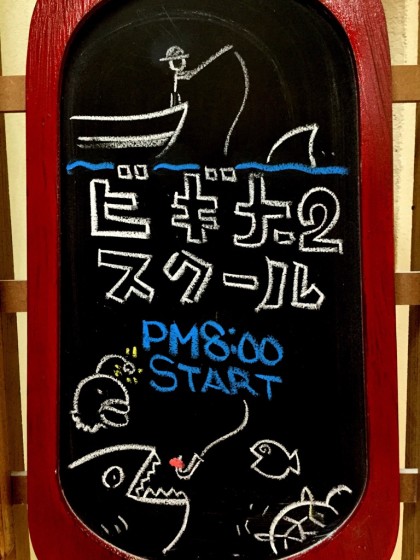 ビギナ.2
スクール
PM8:00
START